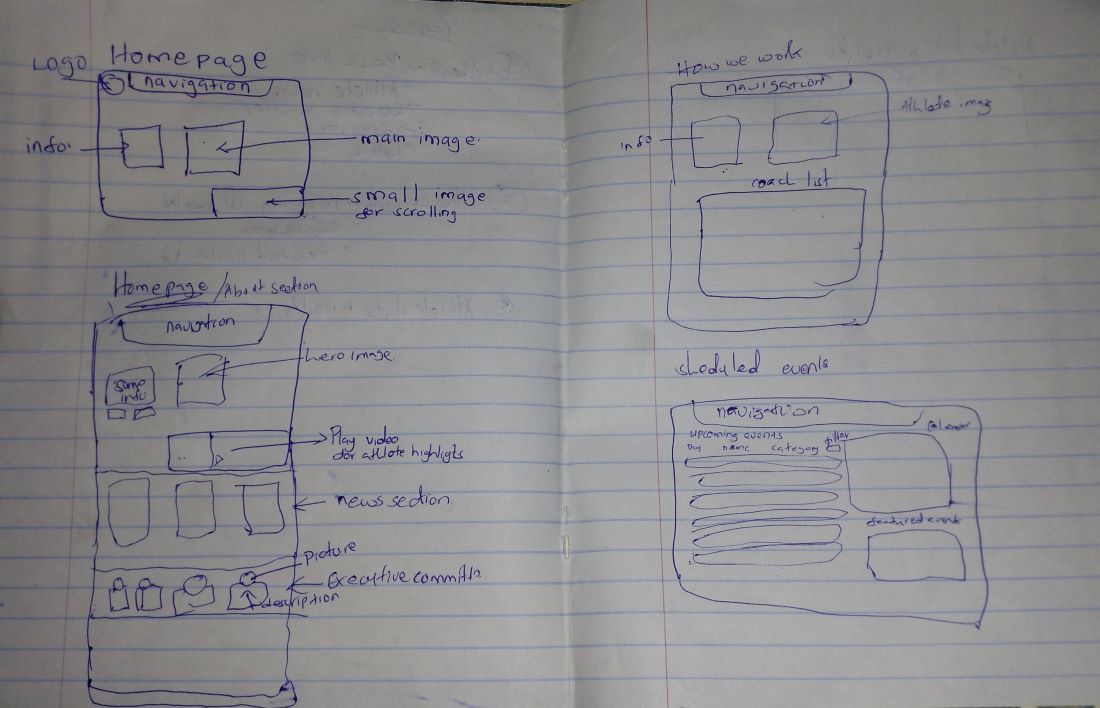 Homepage
Logo
navigation
info.
main image.
small image
for scrolling
Homepage /About section
navigation
hero image
some
info
Play video
for athlete highligts
news section
picture
Executive committe
description
How we work
navigation
Athlate imag
info
coach list
sheduled events
navigation
upcoming events
Day name category
Calender
featured events